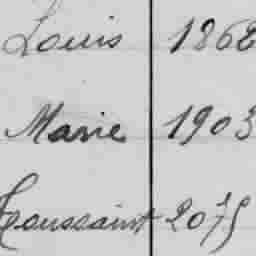 Louis 1868
Marie 1903
Toussaint 2075